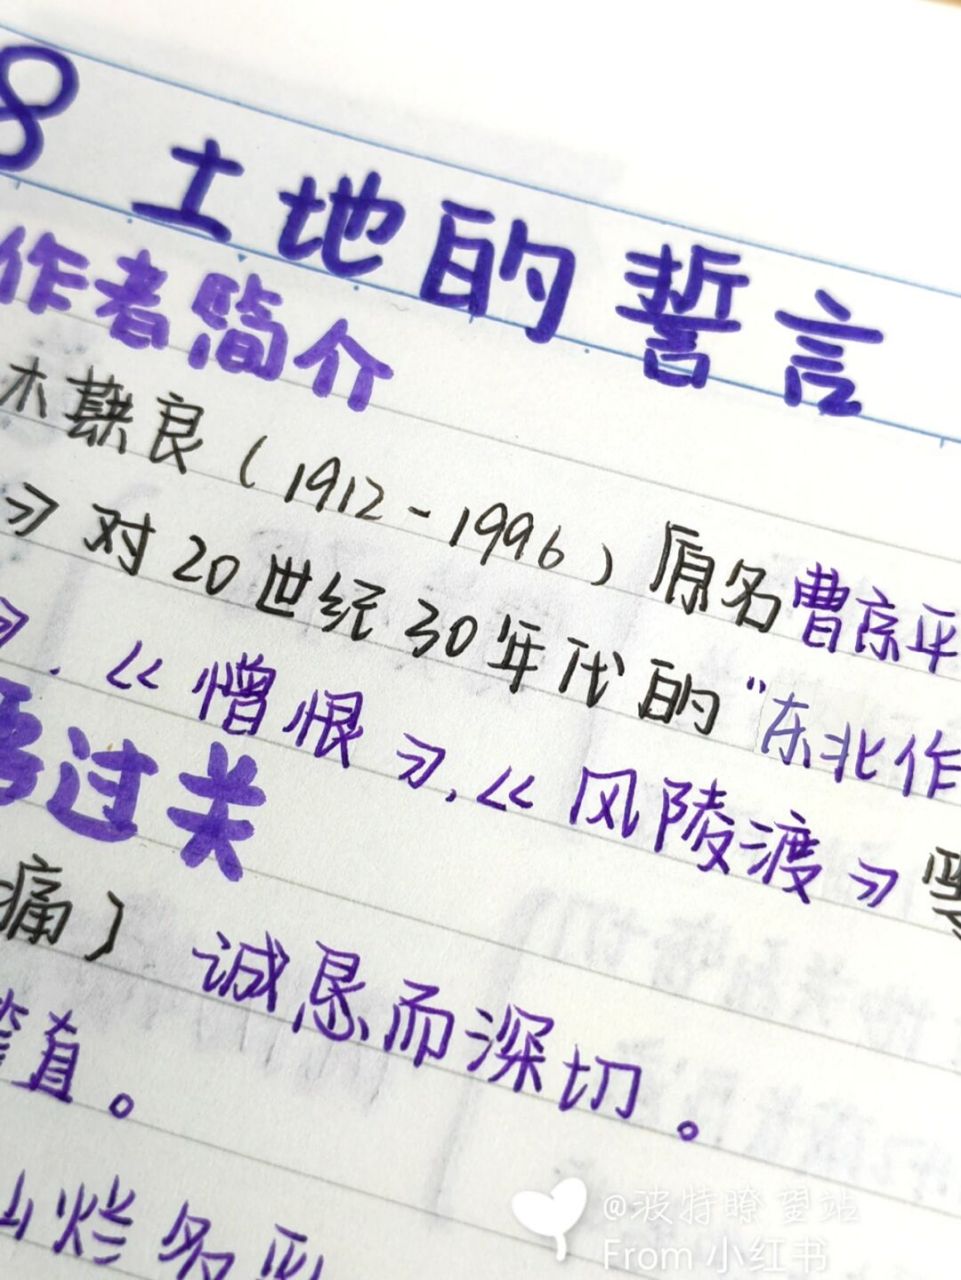 8 土地的誓言
作者简介
木蕻良（1912-1996）原名曹京平
》对20世纪30年代的“东北作
》.《憎恨》.《风陵渡》
过关
痛）诚恳而深切。
直。
烂多彩
@波特瞭望站
From 小红书